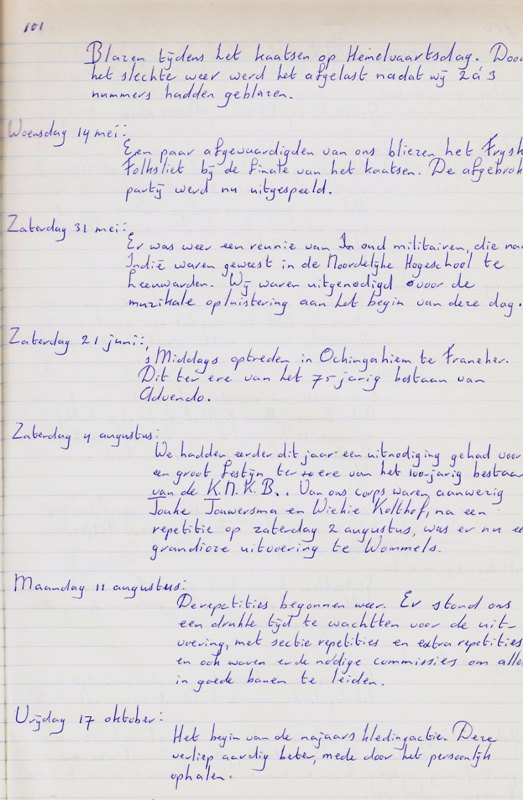 101
Blazen tijdens het kaatsen op Hemelvaartsdag. Door
het slechte weer werd het afgelast nadat wij 2 á 3
nummers hadden geblazen.
Woensdag 14 mei:
Een paar afgevaardigden van ons bliezen het Frysk
Folksliet bij de finale van het kaatsen. De afgebrok
partij werd nu uitgespeeld.
Zaterdag 31 mei:
Er was weer een reunie van In oud militairen, die naa
Indië waren geweest in de Noordelijke Hogeschool te
Leeuwarden. Wij waren uitgenodigd voor de
muzikale opluistering aan het begin van deze dag.
Zaterdag 21 juni:
's Middags optreden in Ockingahiem te Franeker.
Dit ter ere van het 75 jarig bestaan van
Advendo.
Zaterdag 4 augustus:
We hadden eerder dit jaar een uitnodiging gehad voor
een groot festijn ter ere van het 100-jarig bestaan
van de K.N.K.B.. Van ons corps waren aanwezig
Jouke Jouwersma en Wiekie Kolthof, na een
repetitie op zaterdag 2 augustus, was er nu ee
grandioze uitvoering te Wommels.
Maandag 11 augustus:
De repetities begonnen weer. Er stond ons
een drukke tijd te wachtten voor de uit-
voering, met sectie repetities en extra repetities
en ook waren er de nodige commissies om alles
in goede banen te leiden.
Vrijdag 17 oktober:
Het begin van de najaars kledingactie. Deze
verliep aardig beter, mede door het persoonlijk
ophalen.